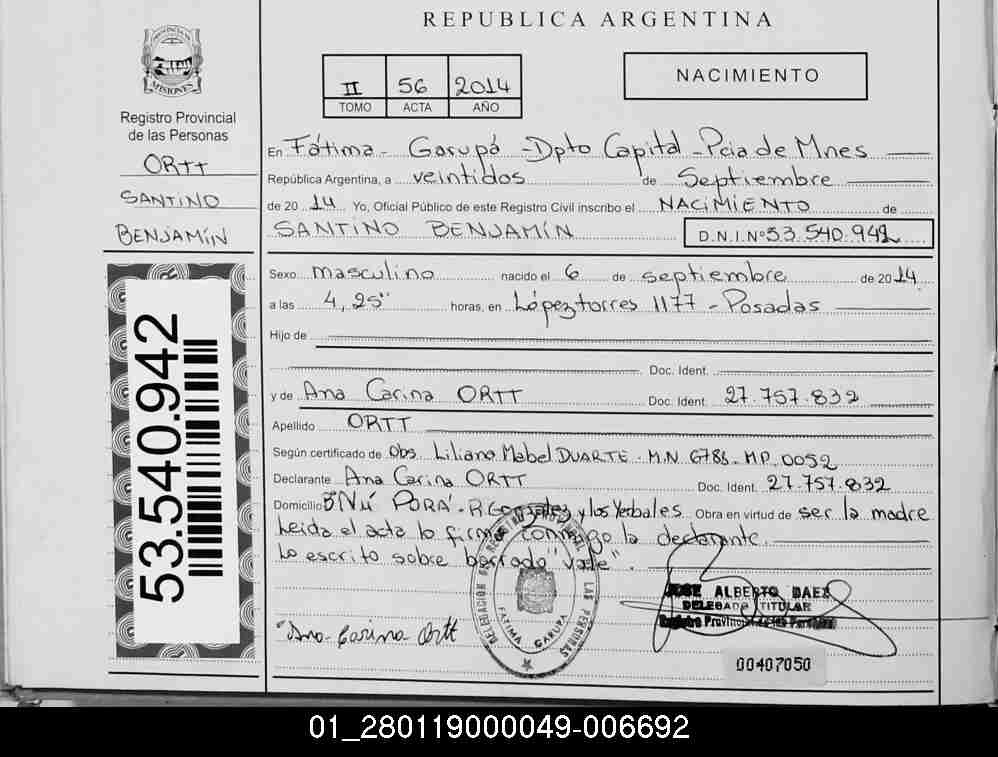 REPUBLICA ARGENTINA
PROVINCIA DE
MISIONES
Registro Provincial
de las Personas
ORTT
SANTINO
BENJAMÍN
53.540.942
II 56 2014
TOMO ACTA AÑO
NACIMIENTO
En Fátima - Garupá - Dpto Capital - Pcia de Mnes
República Argentina, a veintidos de Septiembre
de 2014 Yo, Oficial Público de este Registro Civil inscribo el NACIMIENTO de
SANTINO BENJAMÍN D.N.I.Nº 53.540.942
Sexo masculino nacido el 6 de septiembre de 2014
a las 4,25" horas, en López torres 1177 - Posadas
Hijo de
Doc. Ident.
y de Ana Carina ORTT Doc. Ident. 27.757.832
Apellido ORTT
Según certificado de Obs. Liliana Mabel DUARTE - M.N 6788 - M.P. 0052
Declarante Ana Carina ORTT Doc. Ident. 27.757.832
Domicilio Bº Ñú PORÁ - R Gonzales y los Yerbales Obra en virtud de ser la madre
Leida el acta lo firma conmigo la declarante.
Lo escrito sobre borrado "vale".
Ana Carina Ortt
DELEGACION DEL REGISTRO PROVINCIAL DE LAS PERSONAS
FATIMA GARUPA
JOSE ALBERTO BAEZ
DELEGADO TITULAR
Registro Provincial de las Personas
00407050
01_280119000049-006692